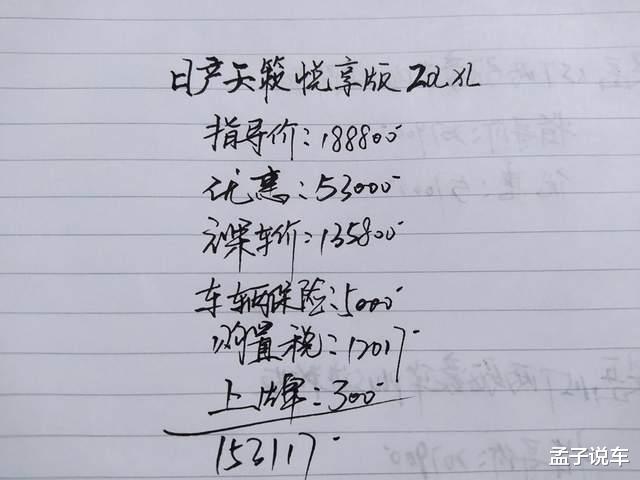 日产天籁悦享版2.0L XL
指导价:188800
优惠:53000
裸车价:135800
车辆保险:5000
购置税:12017
上牌:300
153117
孟子说车